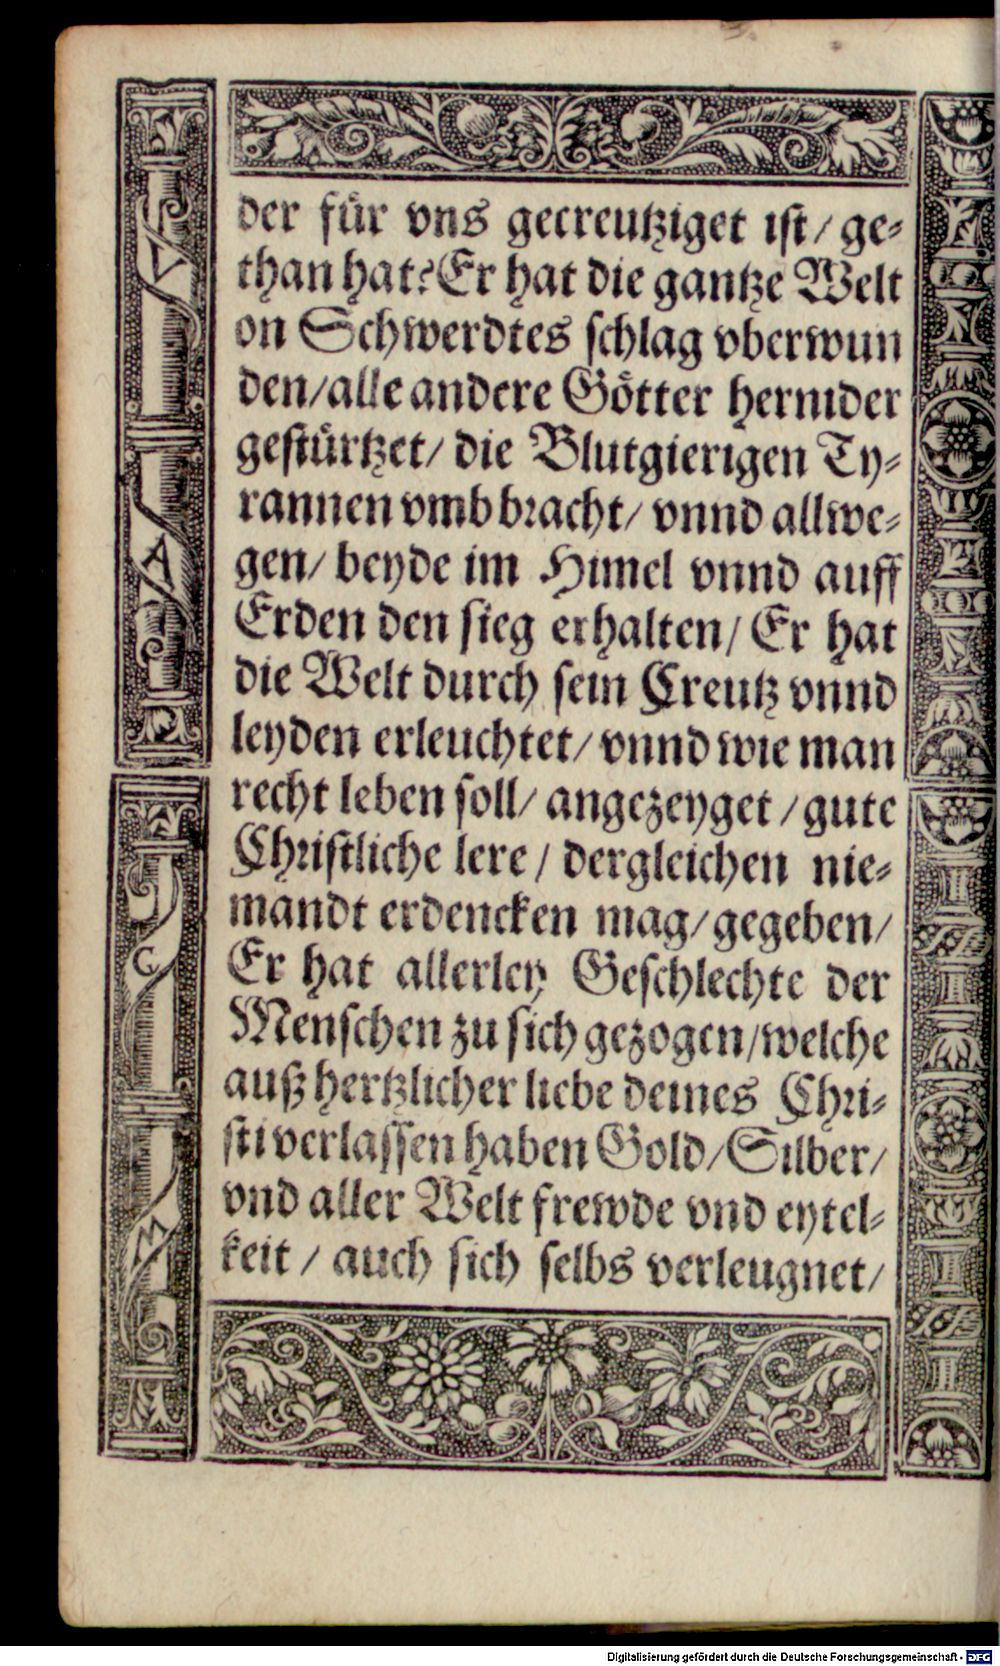 der für vns gecreutziget ist/ ge⸗
than hat? Er hat die gantze Welt
on Schwerdtes schlag vberwun
den/ alle andere Götter hernider
gestürtzet/ die Blutgierigen Ty⸗
rannen vmb bracht/ vnnd allwe⸗
gen/ beyde im Himel vnnd auff
Erden den sieg erhalten/ Er hat
die Welt durch sein Creutz vnnd
leyden erleuchtet/ vnnd wie man
recht leben soll/ angezeyget / gute
Christliche lere / dergleichen nie⸗
mandt erdencken mag/ gegeben/
Er hat allerley Geschlechte der
Menschen zu sich gezogen/ welche
auß hertzlicher liebe deines Chri⸗
sti verlassen haben Gold/ Silber/
vnd aller Welt frewde vnd eytel⸗
keit / auch sich selbs verleugnet/
V
A
C
M
Digitalisierung gefördert durch die Deutsche Forschungsgemeinschaft - DFG